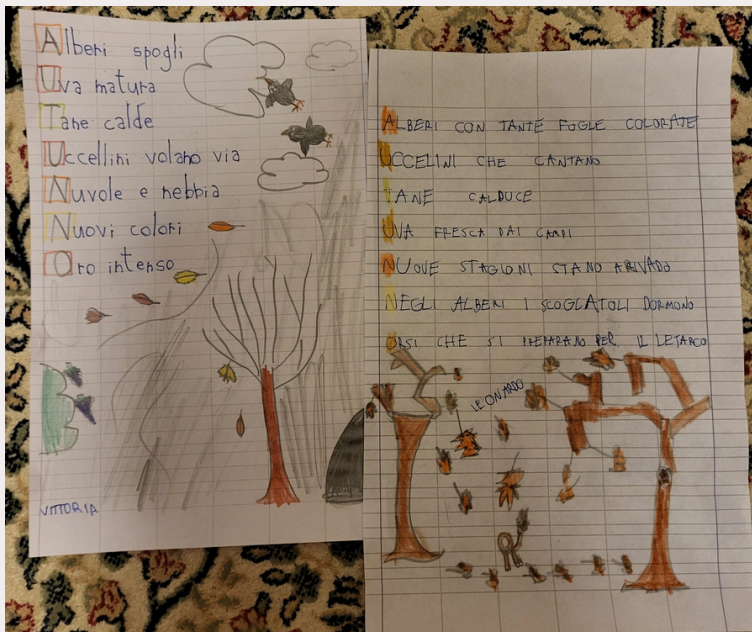 Alberi spogli
Uva matura
Tane calde
Uccellini volano via
Nuvole e nebbia
Nuovi colori
Oro intenso
VITTORIA
ALBERI CON TANTE FOGLE COLORATE
UCCELINI CHE CANTANO
TANE CALDUCE
UVA FRESCA DAI CAMPI
NUOVE STAGIONI STANO ARIVADO
NEGLI ALBERI I SCOGLATOLI DORMONO
ORSI CHE SI PREPARANO PER IL LETARCO
LEONARDO